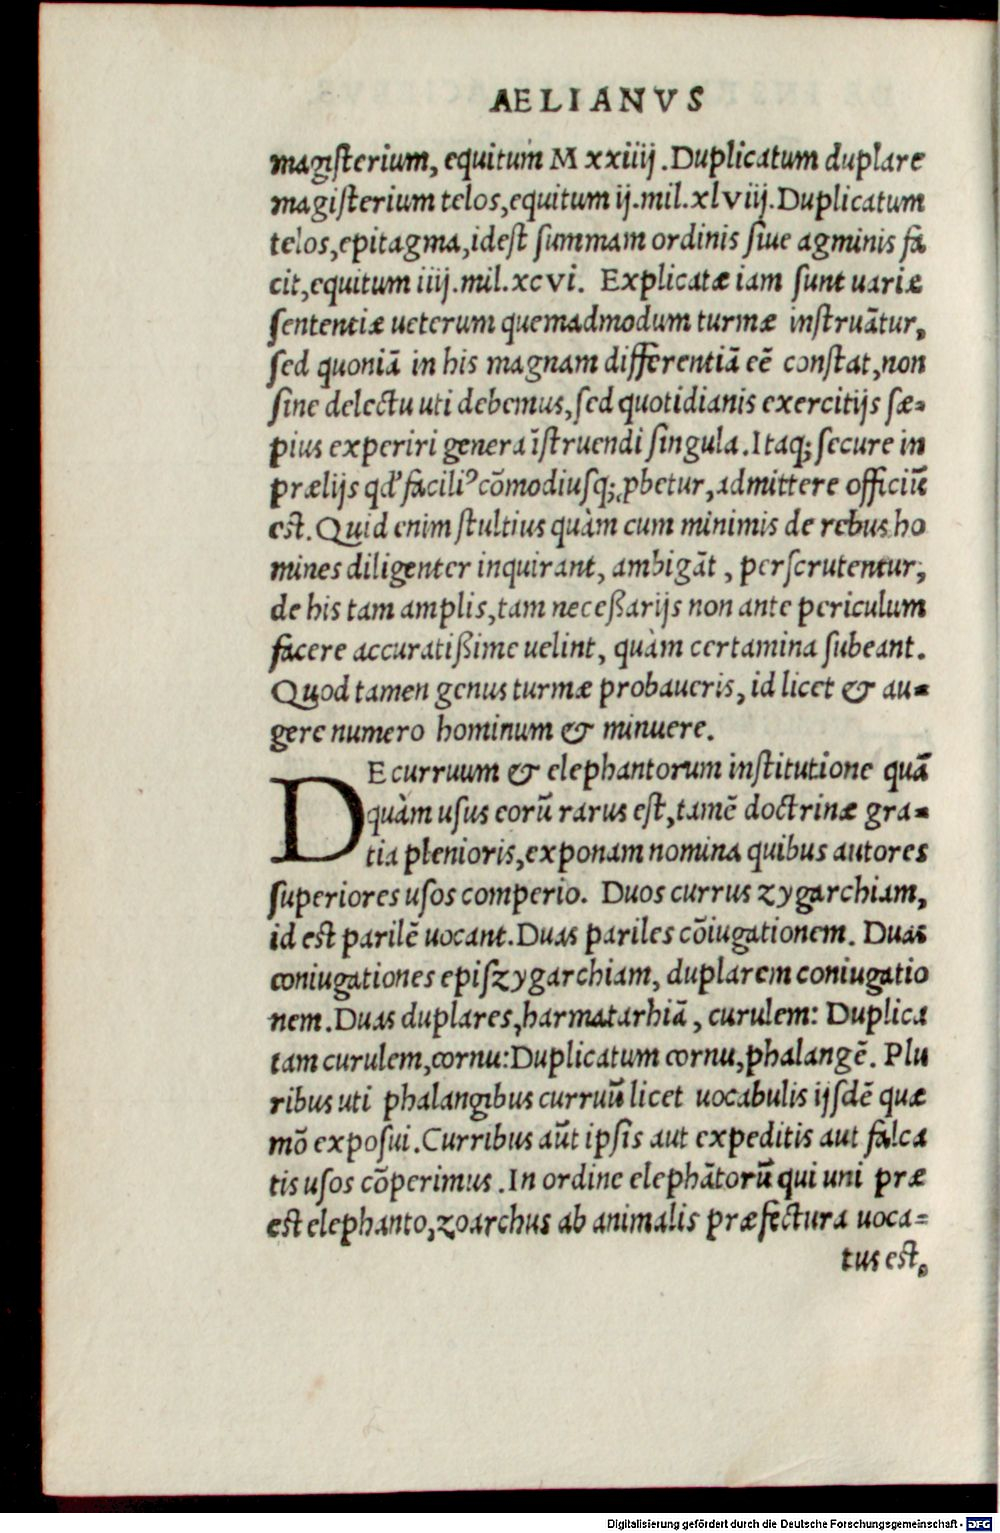 AELIANVS
magisterium, equitum M xxiiij. Duplicatum duplare
magisterium telos, equitum ij.mil.xlviij. Duplicatum
telos, epitagma, idest summam ordinis siue agminis fa
cit, equitum iiij.mil.xcvi. Explicatæ iam sunt uariæ
sententiæ ueterum quemadmodum turmæ instruãtur,
sed quoniã in his magnam differentiã eẽ constat, non
sine delectu uti debemus, sed quotidianis exercitijs sæ-
pius experiri genera ĩstruendi singula. Itaq; secure in
prælijs qđ faciliꝰ cõmodiusq; ꝓbetur, admittere officiũ
est. Quid enim stultius quàm cum minimis de rebus ho
mines diligenter inquirant, ambigãt, perscrutentur,
de his tam amplis, tam neceßarijs non ante periculum
facere accuratißime uelint, quàm certamina subeant.
Quod tamen genus turmæ probaueris, id licet & au-
gere numero hominum & minuere.
DE curruum & elephantorum institutione quã
quàm usus eorũ rarus est, tamẽ doctrinæ gra-
tia plenioris, exponam nomina quibus autores
superiores usos comperio. Duos currus zygarchiam,
id est parilẽ uocant. Duas pariles cõiugationem. Duas
coniugationes episzygarchiam, duplarem coniugatio
nem. Duas duplares, harmatarhiã, curulem: Duplica
tam curulem, cornu: Duplicatum cornu, phalangẽ. Plu
ribus uti phalangibus curruũ licet uocabulis ijsdẽ quæ
mõ exposui. Curribus aũt ipsis aut expeditis aut falca
tis usos cõperimus. In ordine elephãtorũ qui uni præ
est elephanto, zoarchus ab animalis præfectura uoca-
tus est,
Digitalisierung gefördert durch die Deutsche Forschungsgemeinschaft - DFG